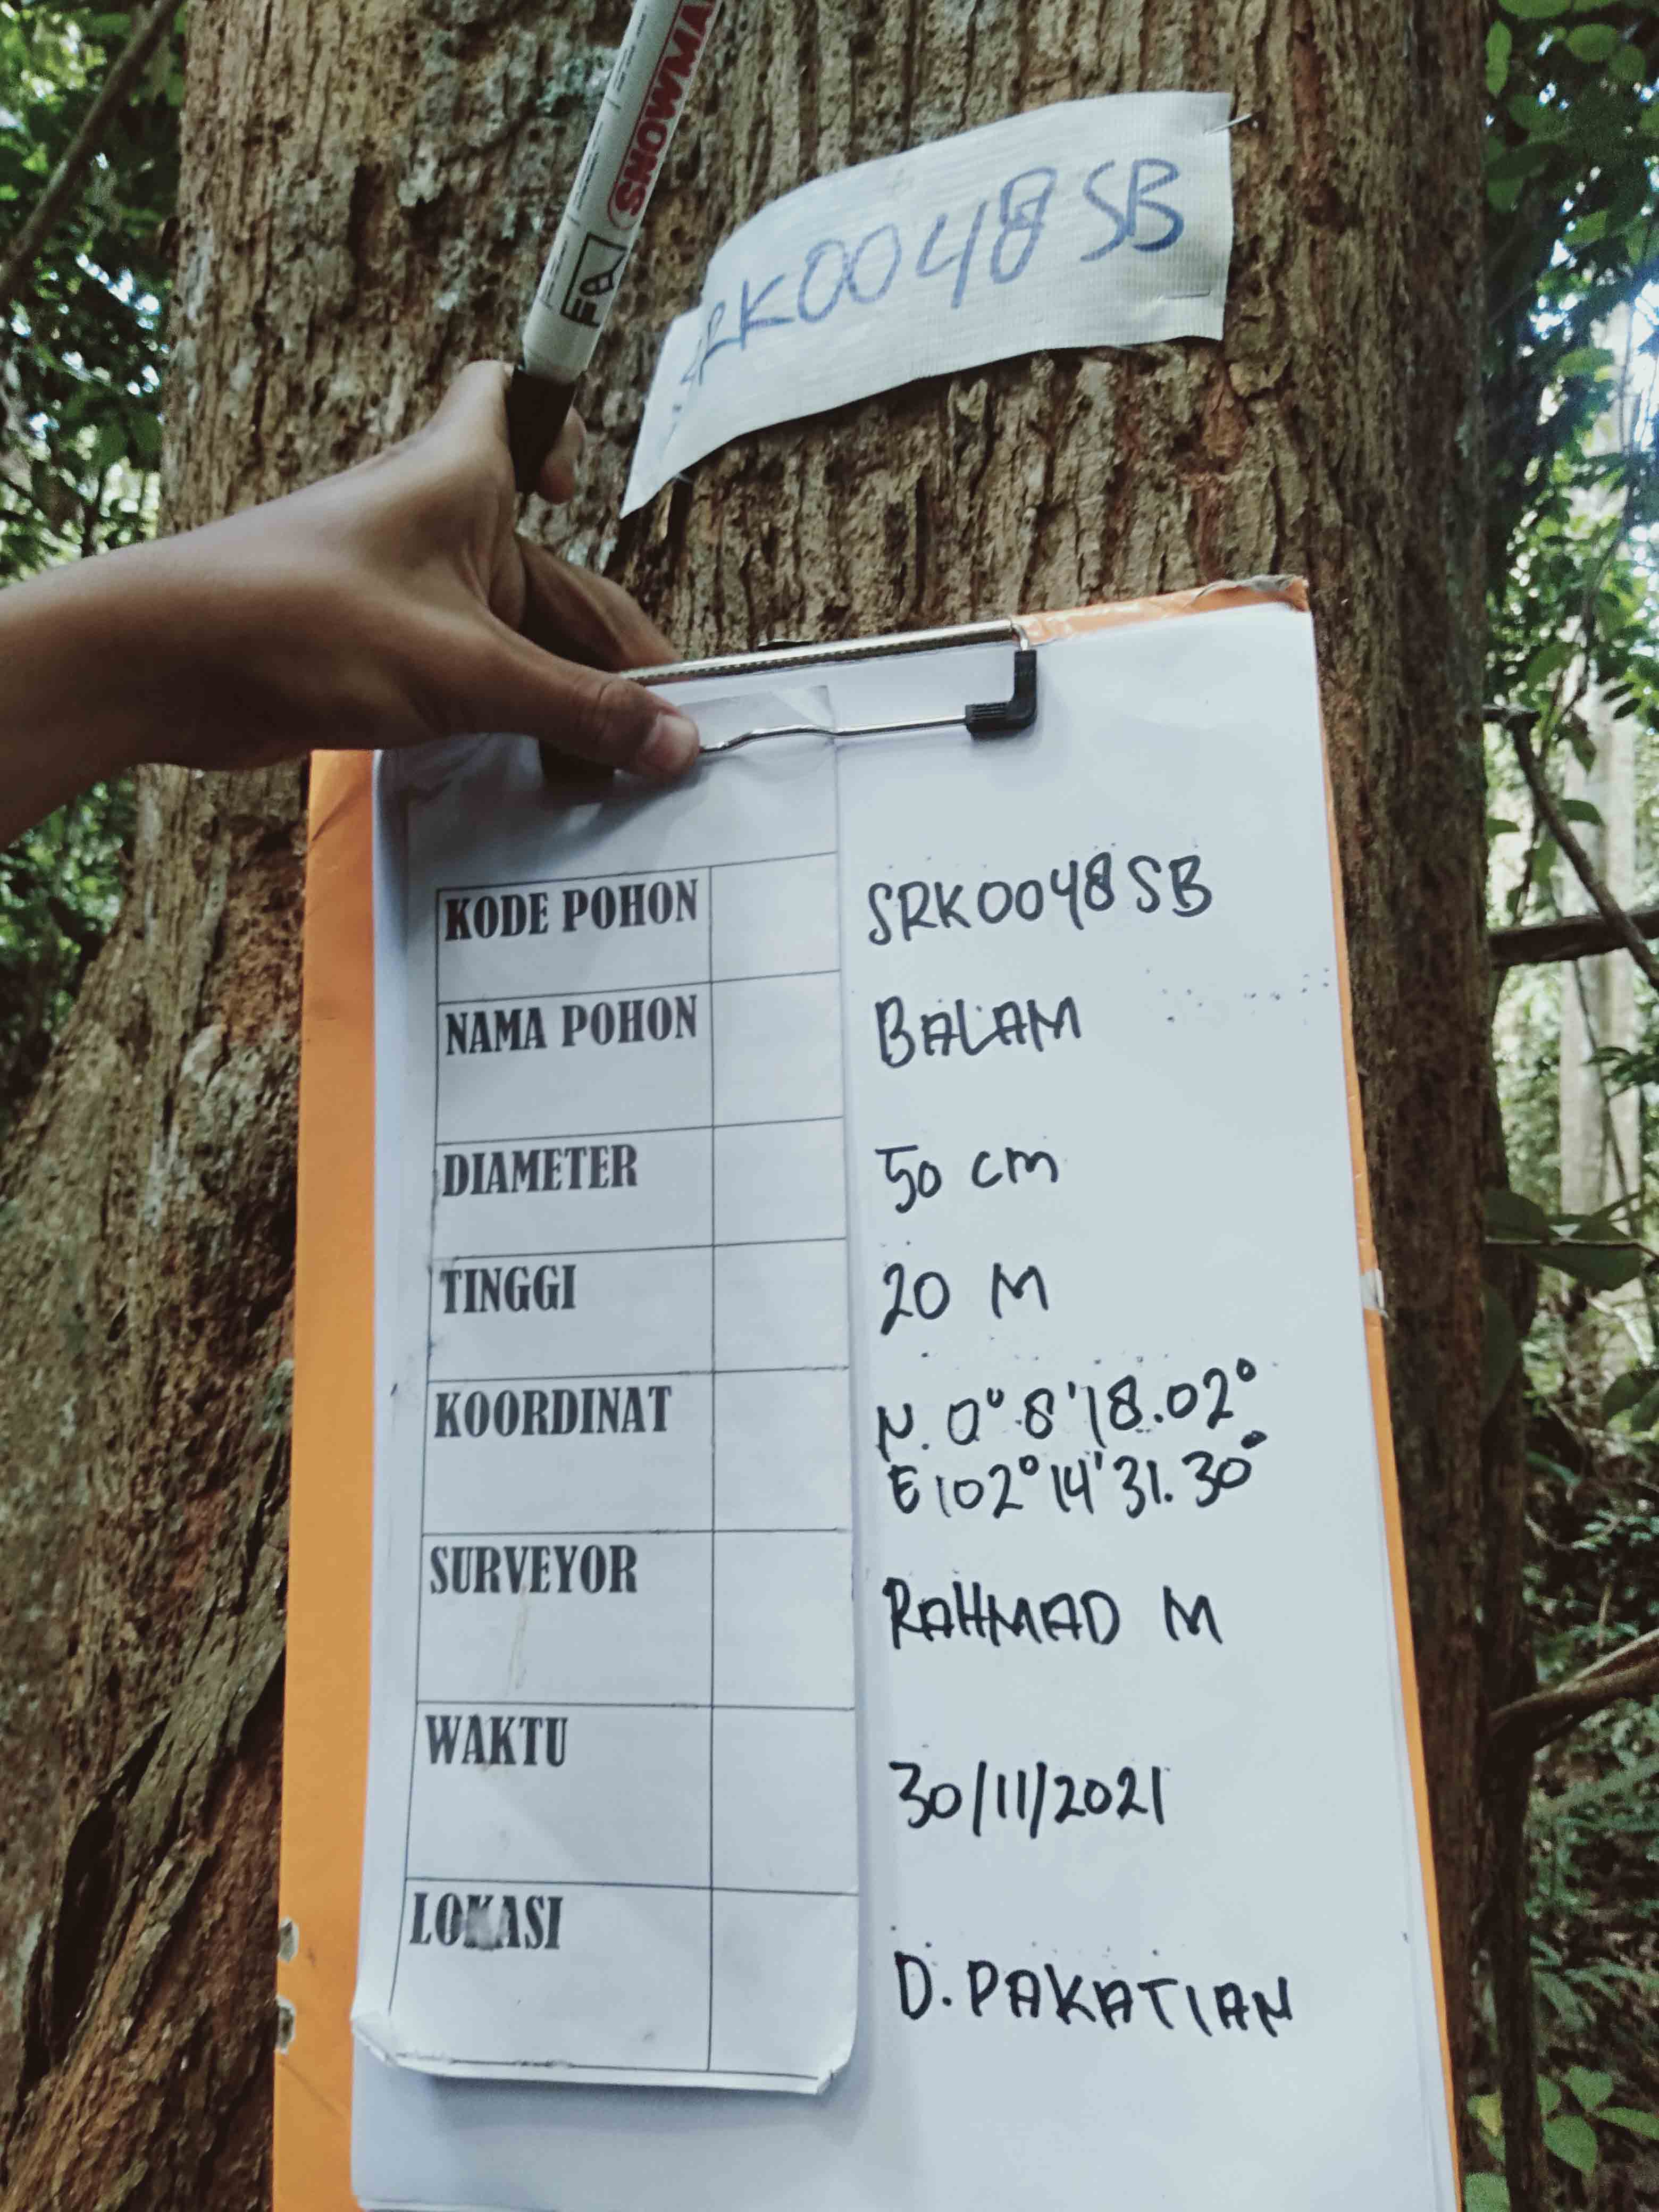 SNOWMA
F
SRK0048SB
KODE POHON SRK0048SB
NAMA POHON BALAM
DIAMETER 50 cm
TINGGI 20 M
KOORDINAT N. 0° 8' 18.02°
E 102° 14' 31. 30°
SURVEYOR RAHMAD M
WAKTU 30/11/2021
LOKASI D. PAKATIAN